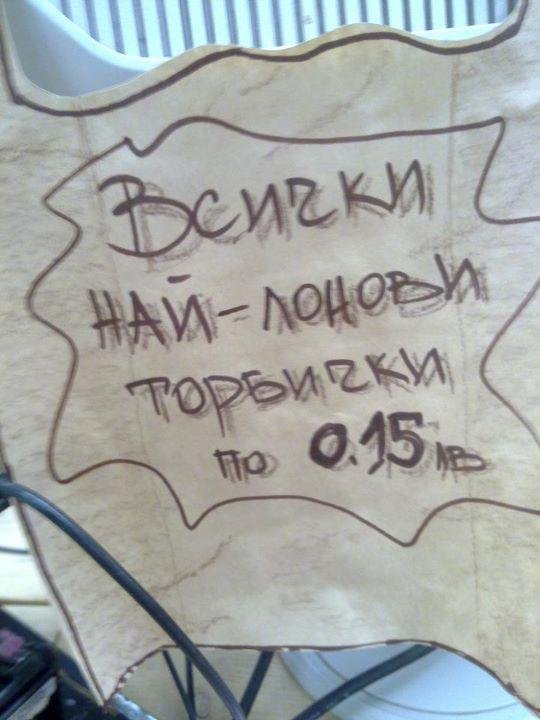 Всички
най-лонови
торбички
по 0.15 лв